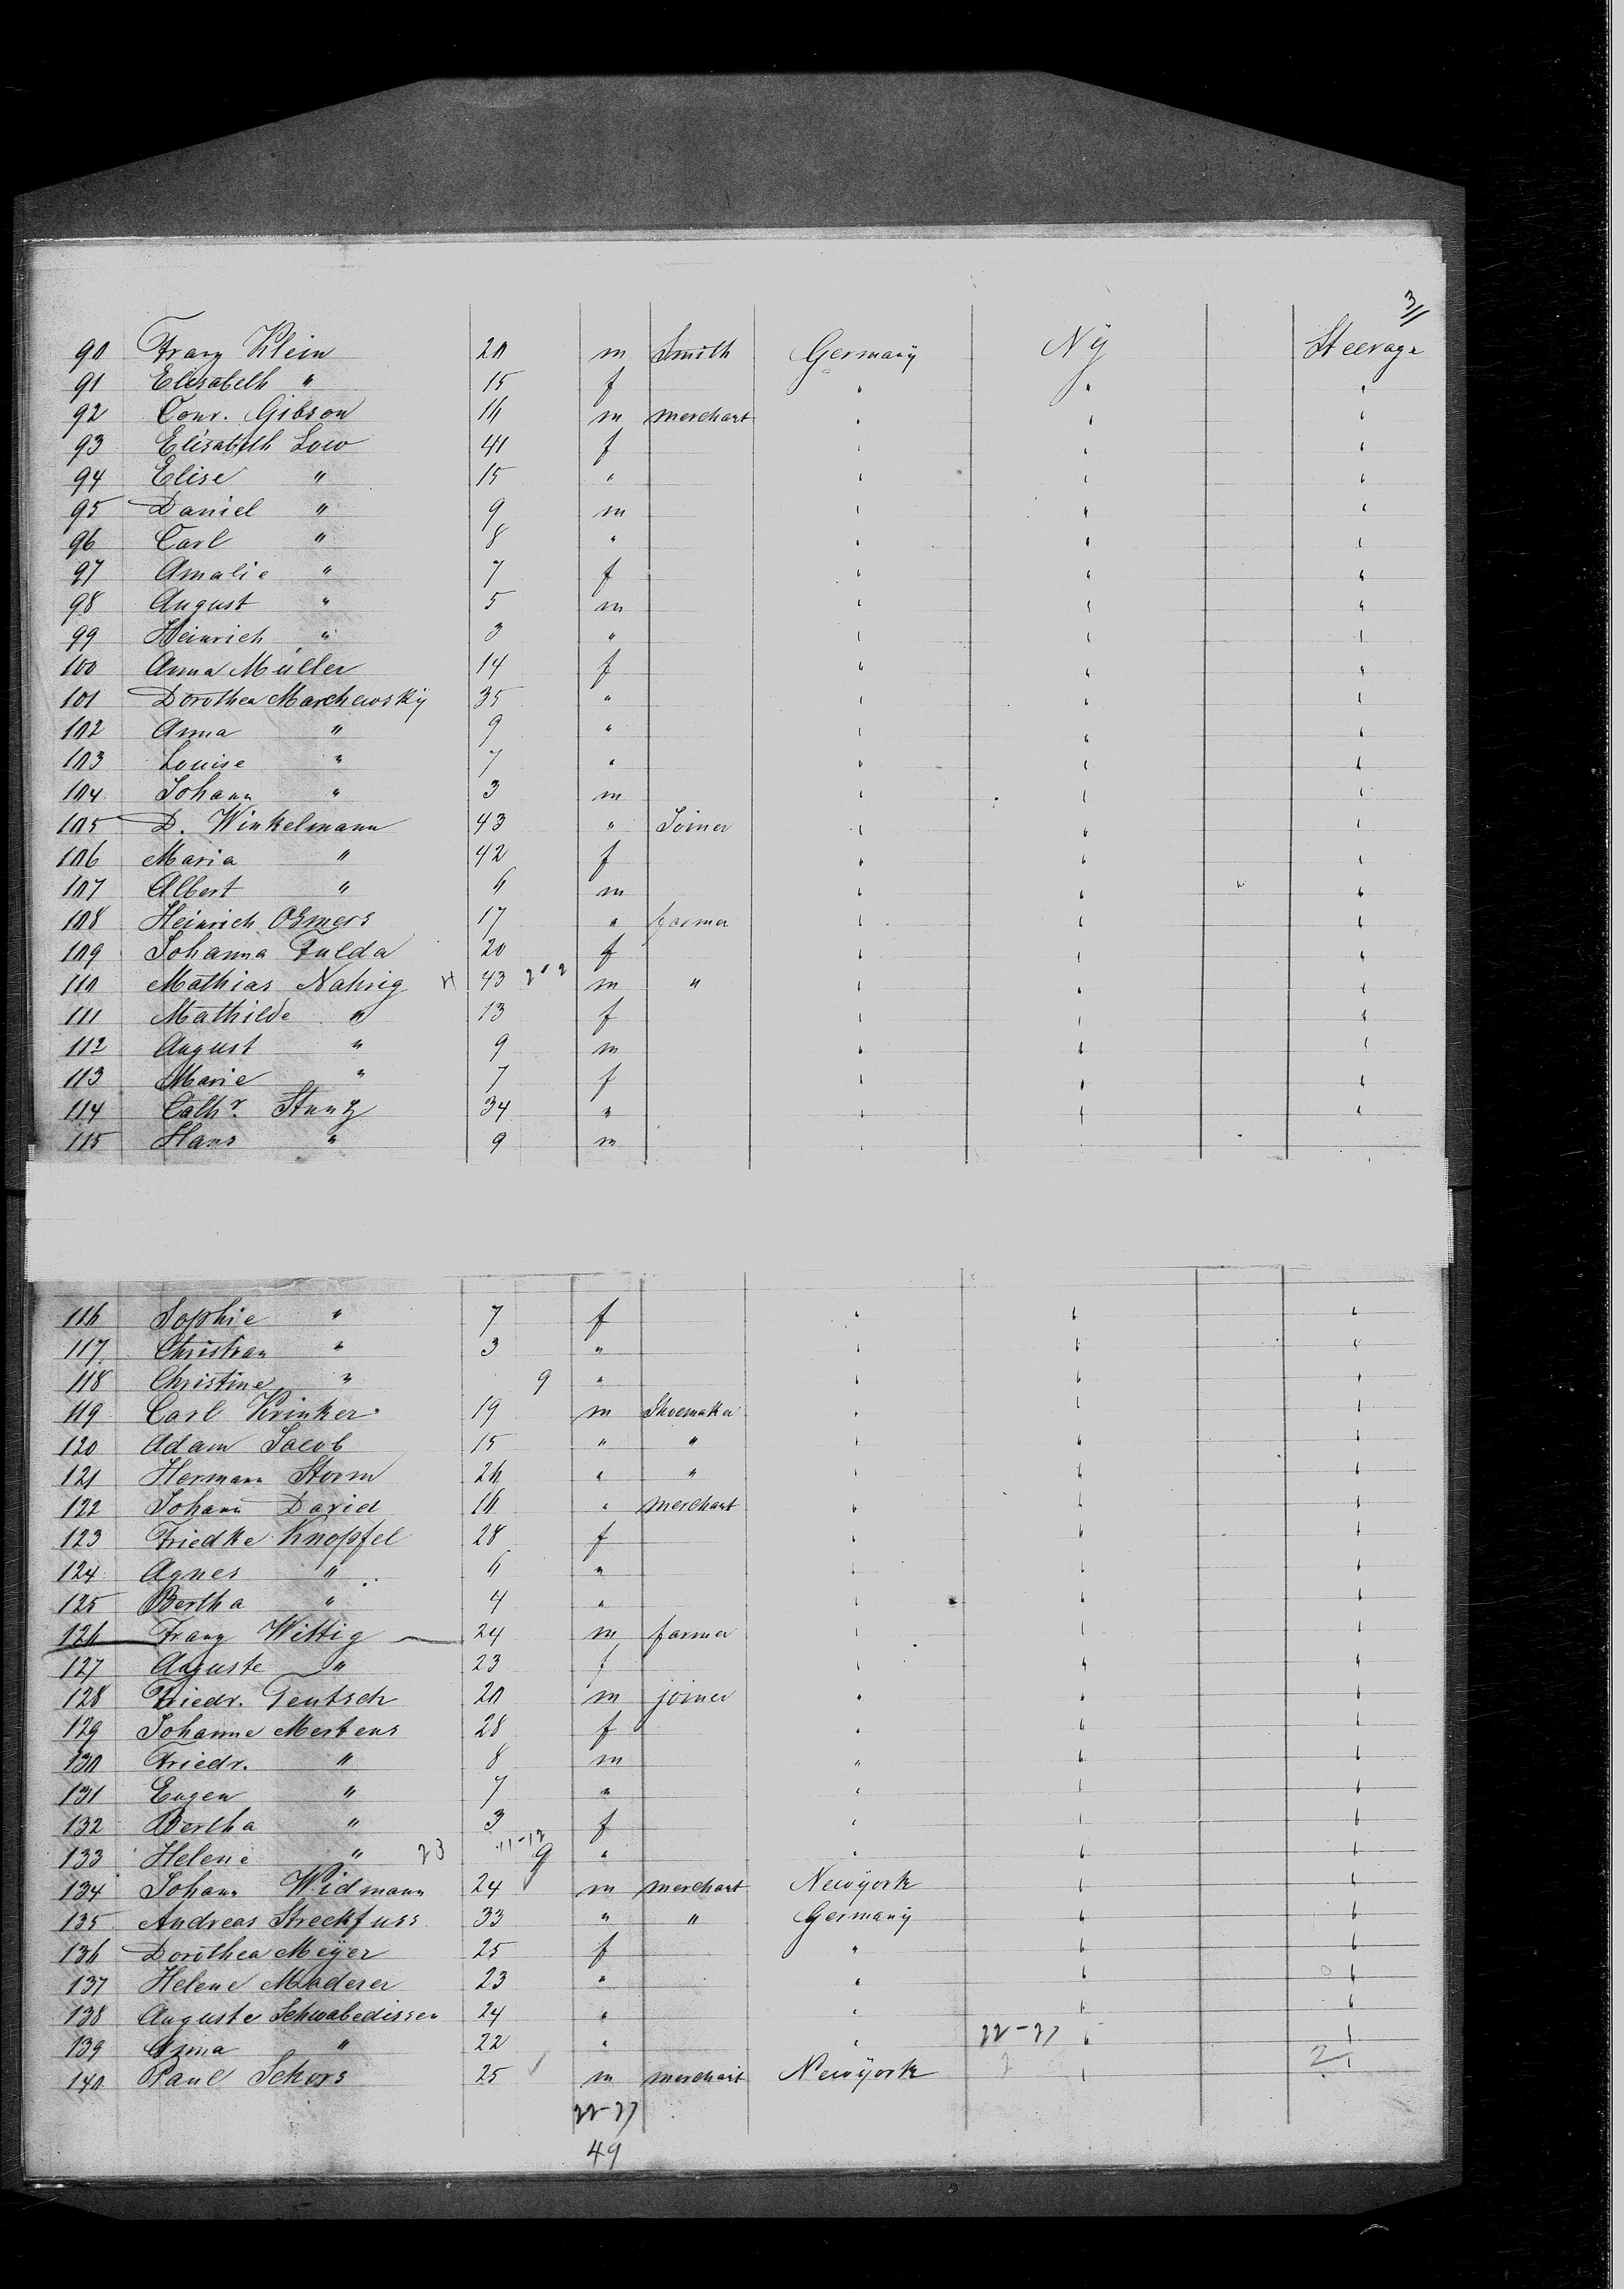 3
90 Franz Klein 20 m Smith Germany Ny Steerage
91 Elisabeth " 15 f " " "
92 Conr. Gibson 16 m merchant " " "
93 Elisabeth Low 41 f " " "
94 Elise " 15 " " " "
95 Daniel " 9 m " " "
96 Carl " 8 " " " "
97 Amalie " 7 f " " "
98 August " 5 m " " "
99 Heinrich " 3 " " " "
100 Anna Müller 14 f " " "
101 Dorothea Marchewsky 35 " " " "
102 Anna " 9 " " " "
103 Louise " 7 " " " "
104 Johann " 3 m " " "
105 D. Winkelmann 43 " Joiner " " "
106 Maria " 42 f " " "
107 Albert " 6 m " " "
108 Heinrich Osmers 17 " farmer " " "
109 Johanna Fulda 20 f " " "
110 Mathias Nahrig 43 m " " " "
111 Mathilde " 13 f " " "
112 August " 9 m " " "
113 Marie " 7 f " " "
114 Cathr. Stuntz 34 " " " "
115 Hans " 9 m " " "
116 Sophie " 7 f " " "
117 Christian " 3 " " " "
118 Christine " 9 " " " "
119 Carl Krinker 19 m Shoemaker " " "
120 Adam Jacob 15 " " " " "
121 Hermann Storm 26 " " " " "
122 Johann David 16 " merchant " " "
123 Friedke Knopfel 28 f " " "
124 Agnes " 6 " " " "
125 Bertha " 4 " " " "
126 Franz Wittig 24 m farmer " " "
127 Auguste " 23 f " " "
128 Friedr. Teutsch 20 m joiner " " "
129 Johanne Mertens 28 f " " "
130 Friedr. " 8 m " " "
131 Eugen " 7 " " " "
132 Bertha " 3 f " " "
133 Helene " 23 11-12 9 " " " "
134 Johann Widmann 24 m merchant Newyork " "
135 Andreas Streckfuss 33 " " Germany " "
136 Dorothea Meyer 25 f " " "
137 Helene Maderer 23 " " " "
138 Auguste Schwabedissen 24 " " " "
139 Anna " 22 " " 22-27 " "
140 Paul Schors 25 m merchant Newyork " 2 "
22-27
49